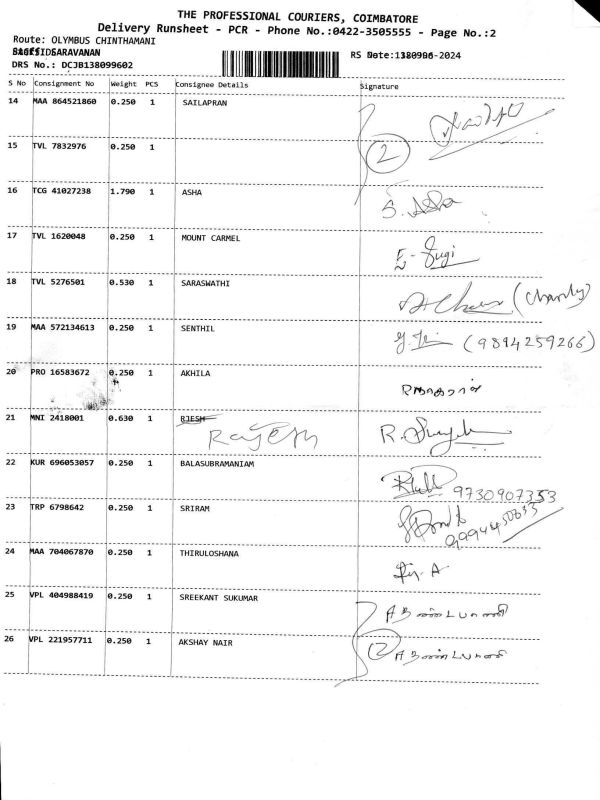 THE PROFESSIONAL COURIERS, COIMBATORE
Delivery Runsheet - PCR - Phone No.:0422-3505555 - Page No.:2
Route: OLYMBUS CHINTHAMANI
SARAVANAN
RS Date: -2024
DRS No.: DCJB138099602
S No Consignment No Weight PCS Consignee Details Signature
14 MAA 864521860 0.250 1 SAILAPRAN
15 TVL 7832976 0.250 1
2
16 TCG 41027238 1.790 1 ASHA S. Asha
17 TVL 1620048 0.250 1 MOUNT CARMEL Sugi
18 TVL 5276501 0.530 1 SARASWATHI
19 MAA 572134613 0.250 1 SENTHIL (9894259266)
20 PRO 16583672 0.250 1 AKHILA
21 MNI 2418001 0.630 1 RJESH
Rajesh
22 KUR 696053057 0.250 1 BALASUBRAMANIAM 9730907353
23 TRP 6798642 0.250 1 SRIRAM
24 MAA 704067870 0.250 1 THIRULOSHANA
25 VPL 404988419 0.250 1 SREEKANT SUKUMAR
26 VPL 221957711 0.250 1 AKSHAY NAIR 2